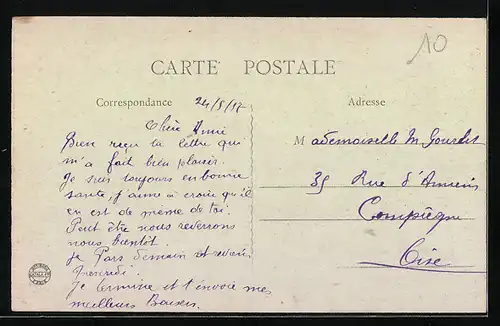 10
CARTE POSTALE
Correspondance 24/8/17
Adresse
Chère Amie
Bien reçu ta lettre qui
m'a fait bien plaisir.
Je suis toujours en bonne
sante, j'aime à croire qu'il
en est de même de toi.
Peut être nous reverrons
nous bientôt.
Je Pars demain et
Je termine et t'envoie mes
meilleurs Baisers.
Mademoiselle M.
35 Rue d'Amiens
Compiègne
Oise